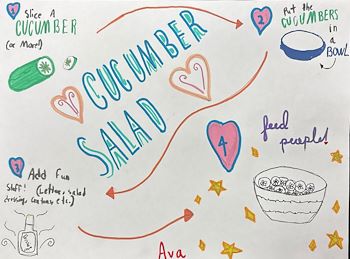 1
Slice A
CUCUMBER
(or More!)
CUCUMBER
SALAD
2
Put the
CUCUMBERS
in
a
BOWL
3
Add Fun
Stuff! (Lettuce, salad
dressing, croutons etc.)
4
feed
people!
Ava